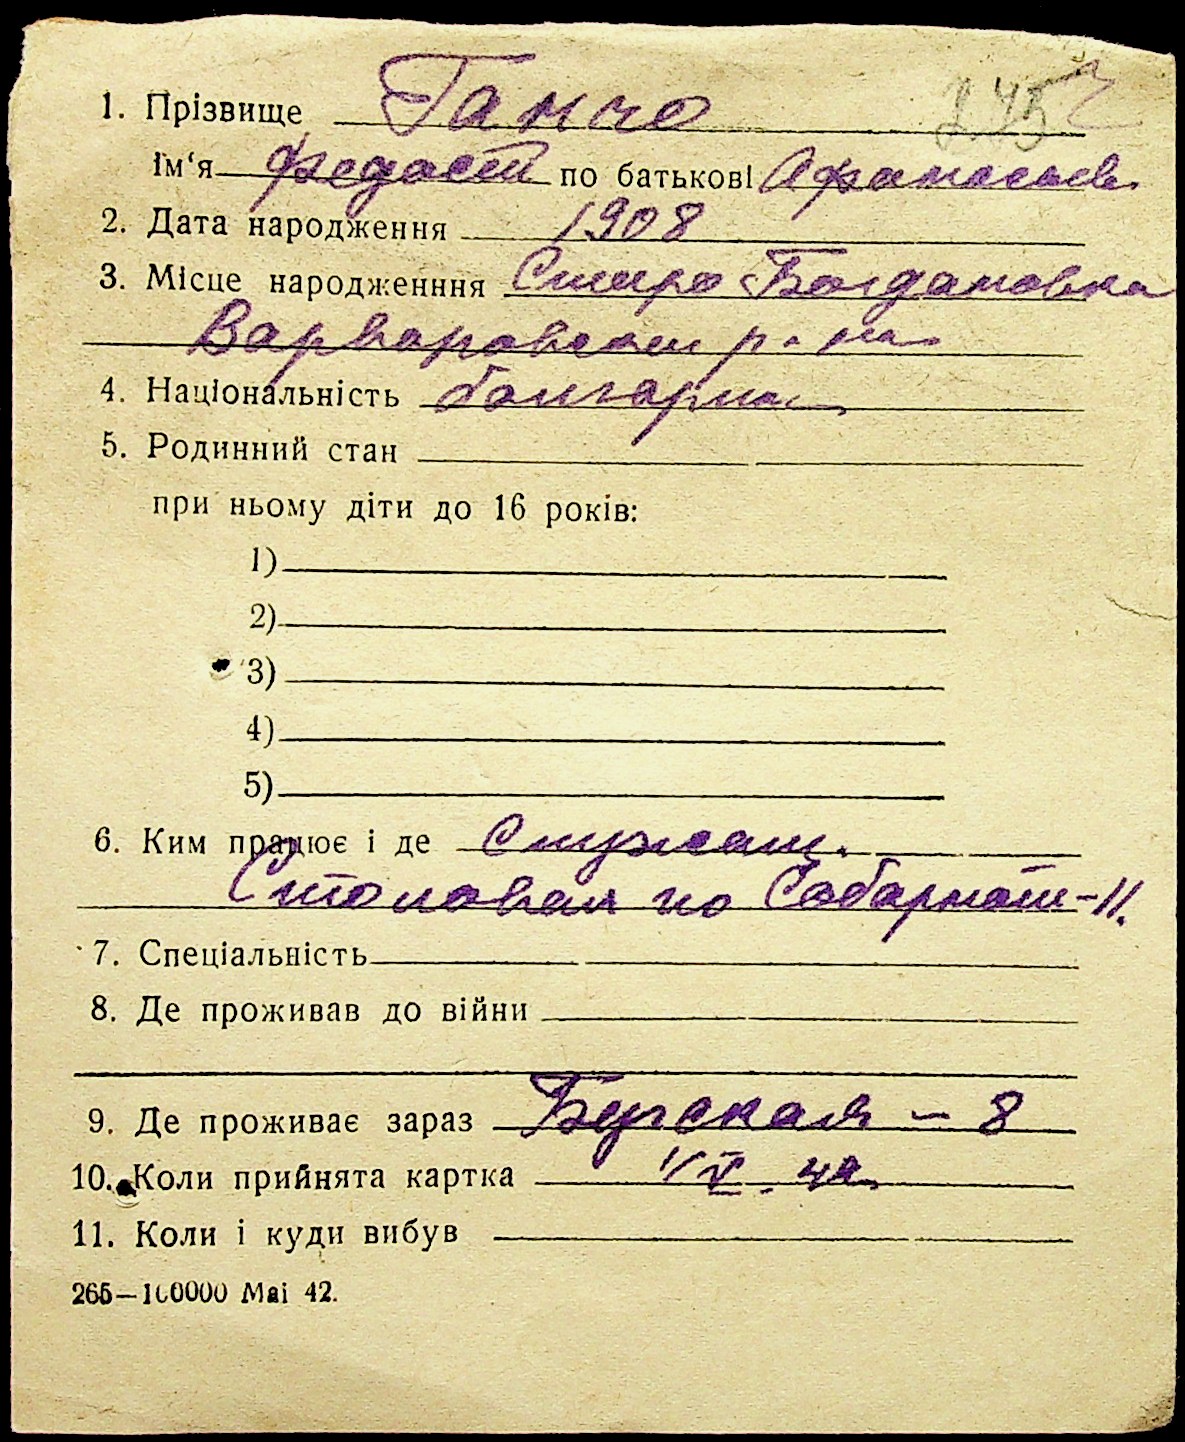 1. Прізвище Ганчо
Ім'я Федост по батькові Афанасьев.
2. Дата народження 1908
3. Місце народженння Старо-Богдановка
Варваровском р-на
4. Національність болгарка
5. Родинний стан
при ньому діти до 16 років:
1)
2)
3)
4)
5)
6. Ким працює і де Служащ.
Столовая по Соборной-11.
7. Спеціальність
8. Де проживав до війни
9. Де проживає зараз Бугская - 8
10. Коли прийнята картка
11. Коли і куди вибув
265—100000 Маі 42.